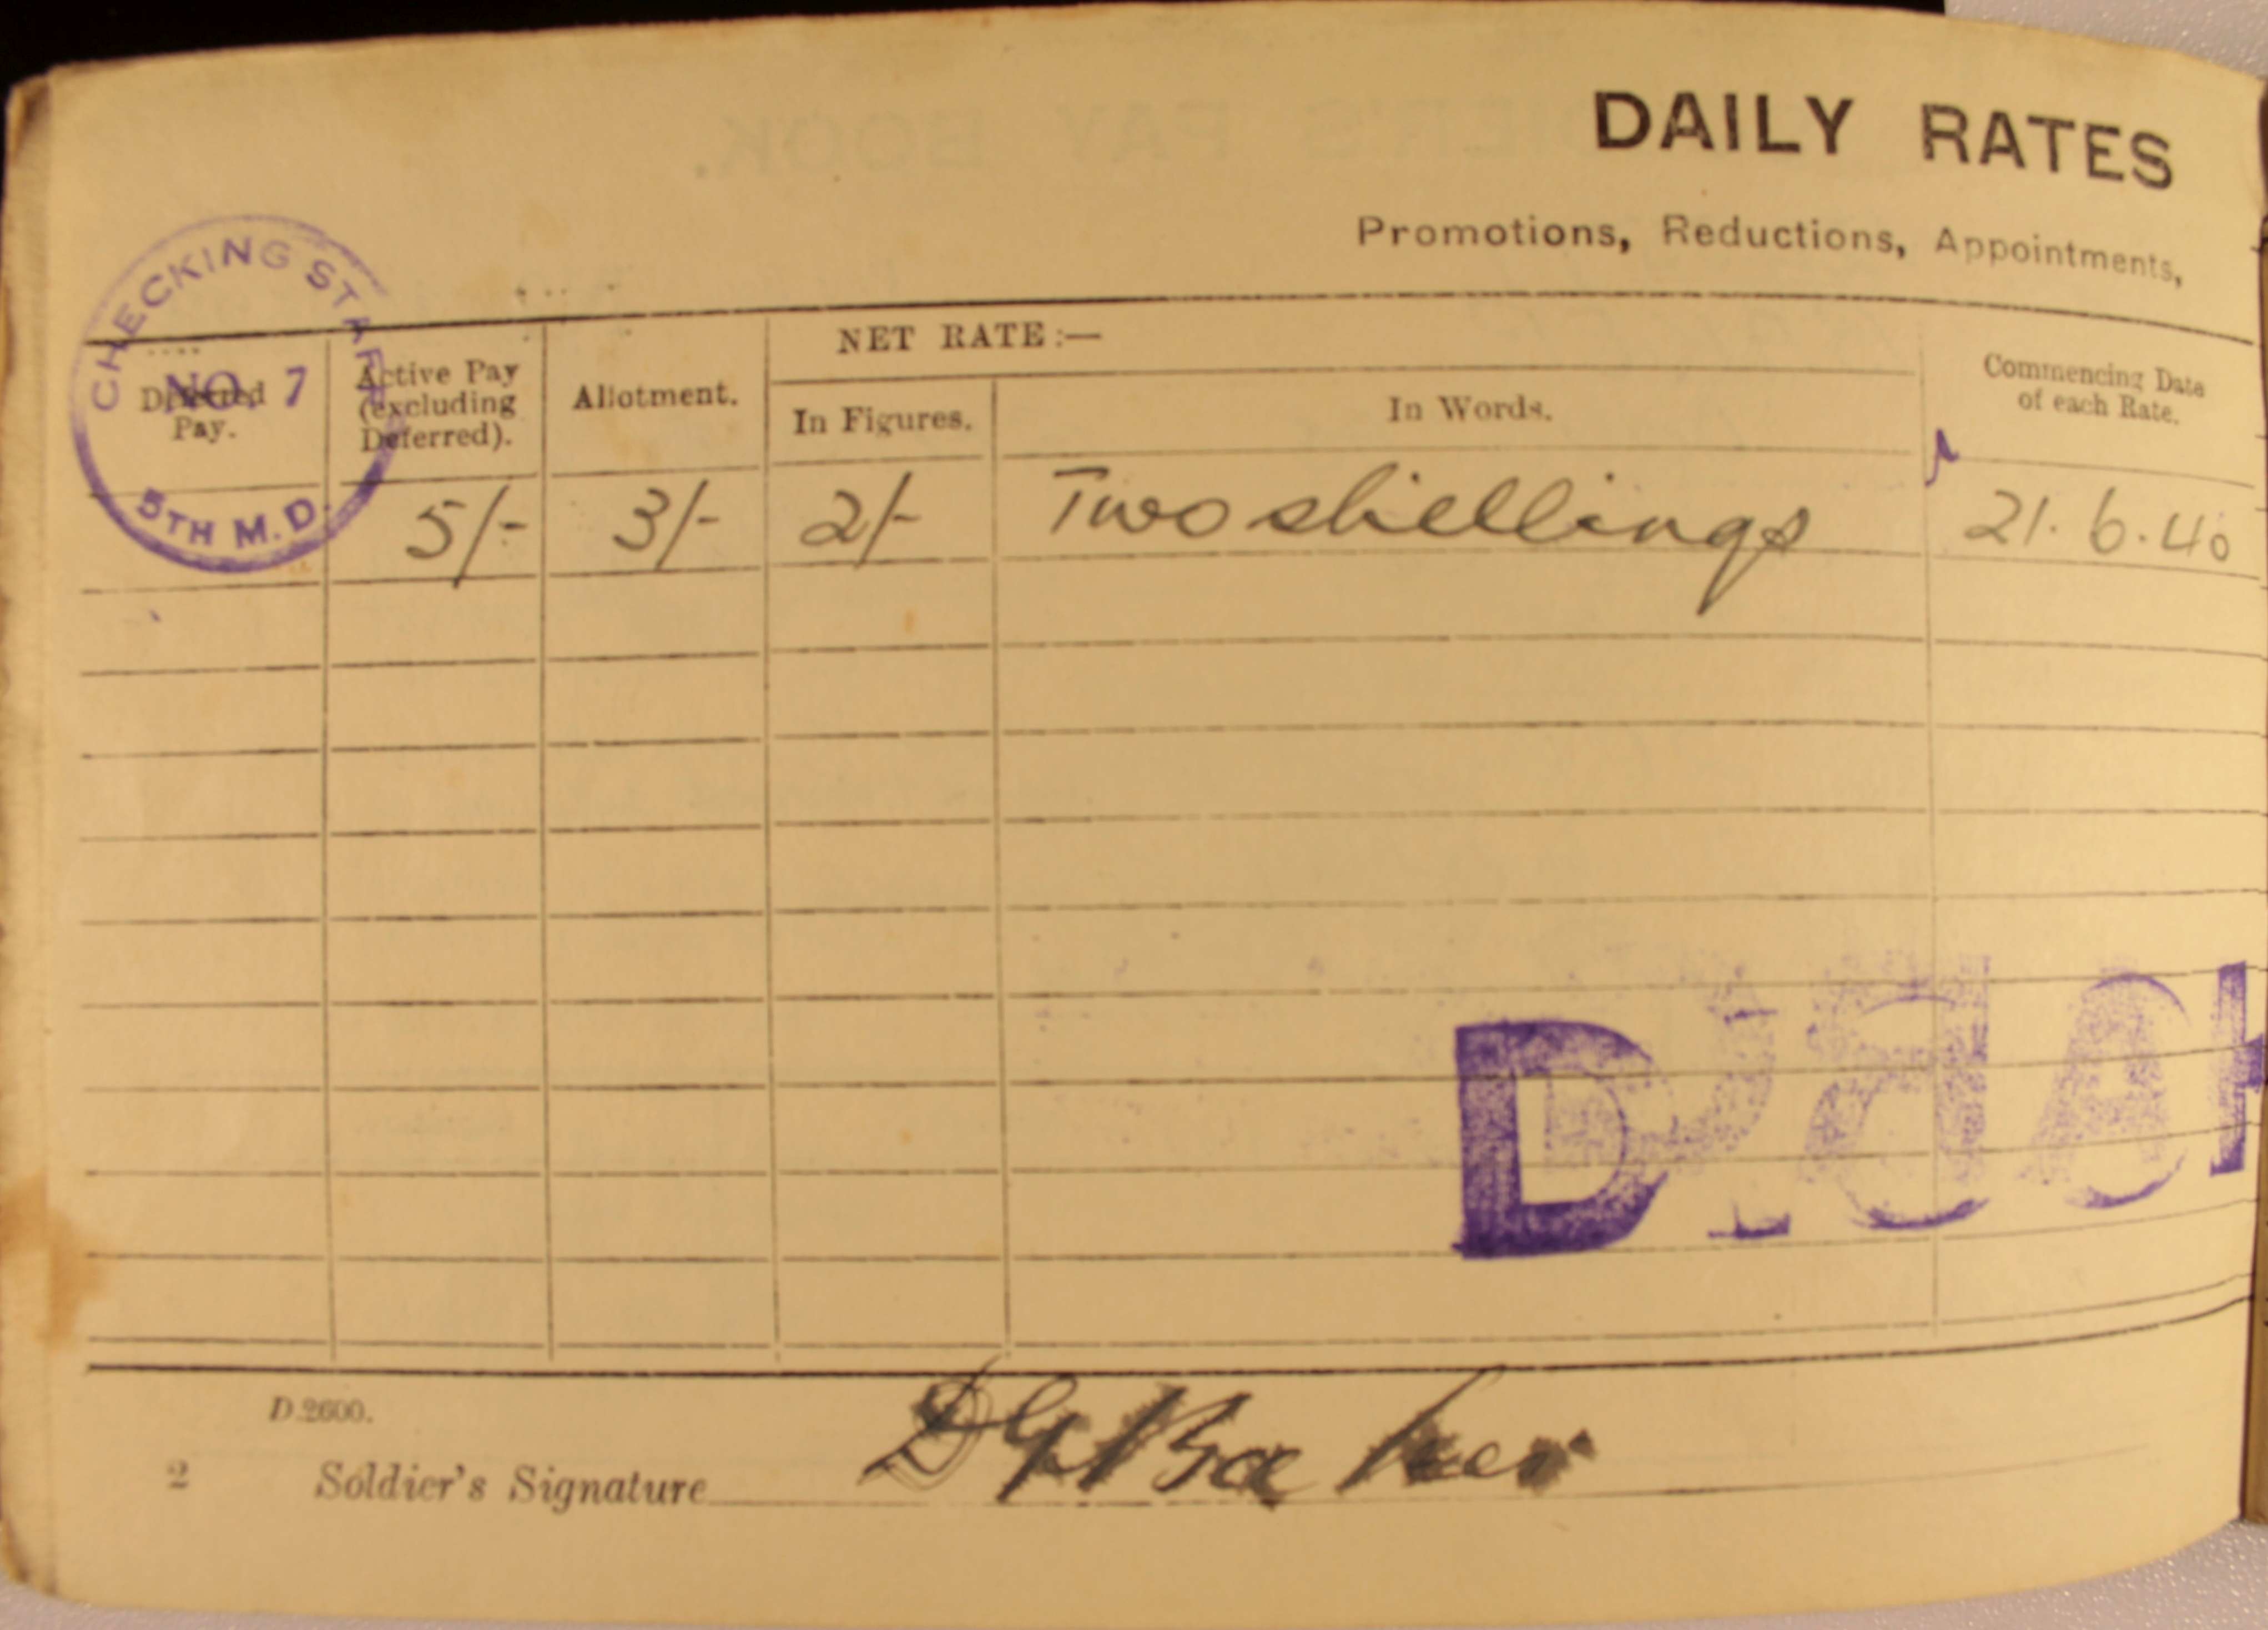 DAILY RATES
Promotions, Reductions, Appointments,
CHECKING STAFF
NO. 7
5TH M.D.
Deferred Pay.
Active Pay (excluding Deferred).
Allotment.
NET RATE:—
In Figures.
In Words.
Commencing Date of each Rate.
5/- 3/- 2/- Two shillings 21.6.40
D
D.2600.
2 Soldier's Signature DG Baker